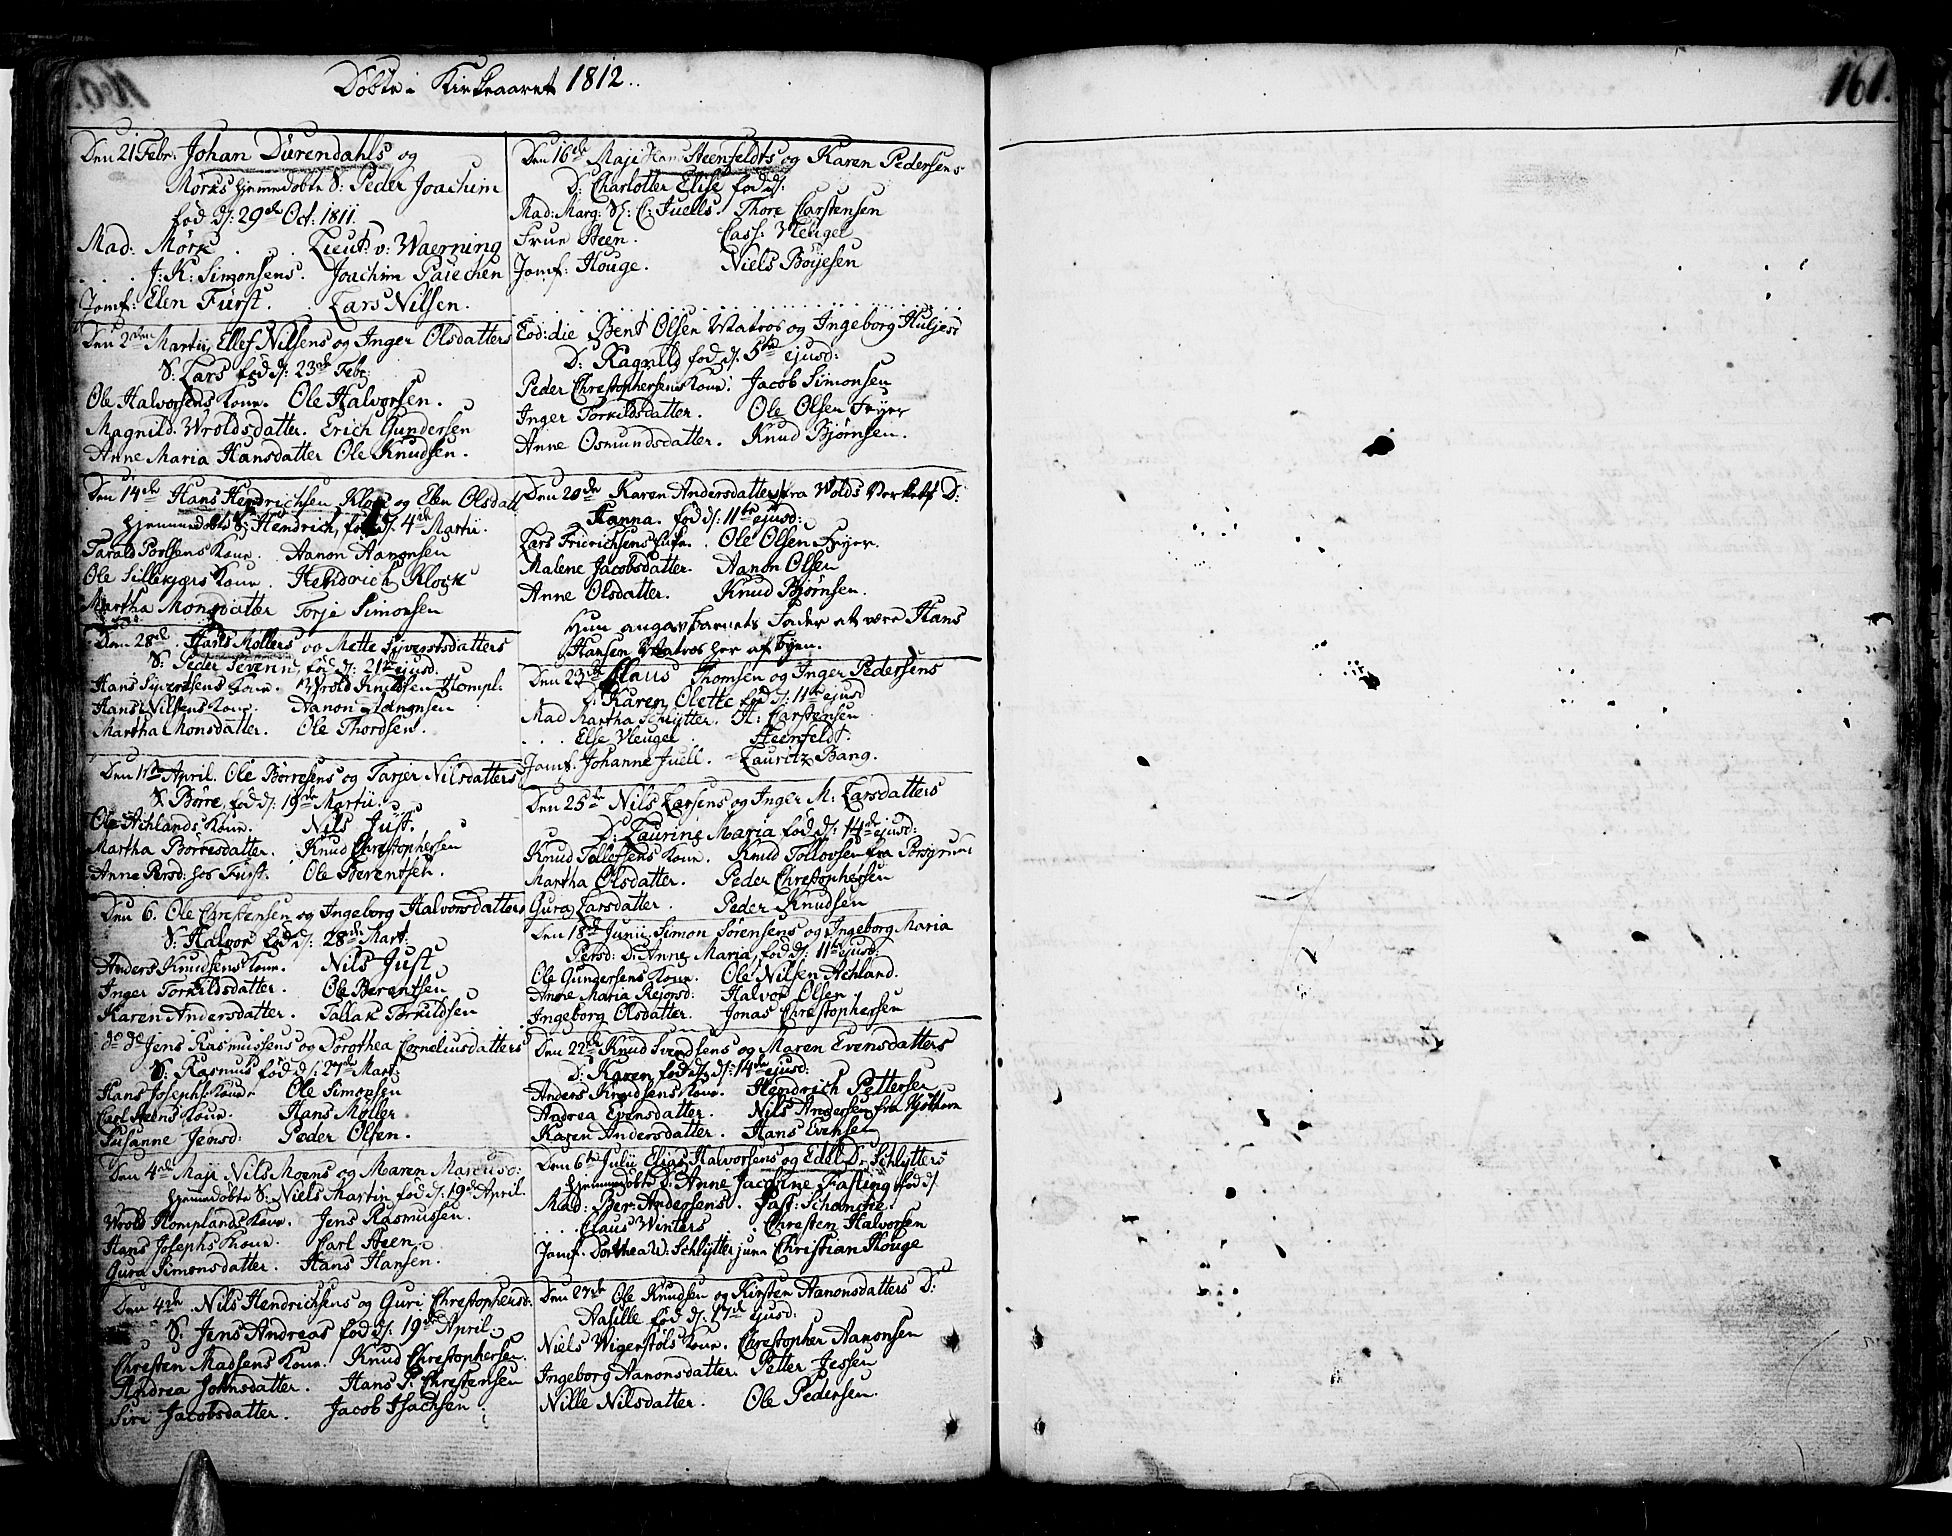 Döbte i Kirkeaaret 1812.
161.
Den 21 Febr. Johan Dürendahls og
Mörks hjemmedöbte S: Peder Joachim
föd d: 29de Oct: 1811.
Mad: Mörk. Lieut: v: Waerning
J: K: Simonsens. Joachim Paiechen
Jomf: Elen Fürst. Lars Nilsen.
Den 2den Martii Ellef Nilsens og Inger Olsdatters
S: Lars föd d: 23de Febr:
Ole Halvorsens Kone. Ole Halvorsen.
Magnild Wroldsdatter. Erich Gundersen
Anne Maria Hansdatter Ole Knudsen.
Den 14de Hans Hendrichsen Klock og Elen Olsdatt
hjemmedöbte S: Hendrich, föd d: 4de Martii.
Tarald Poolsens Kone. Aanon Aanonsen
Ole Sillekjærs Kone. Hendrich Klock
Martha Monsdatter Torje Simonsen
Den 28de Hans Mollers og Mette Syvertsdatters
S: Peder Severin, föd d: 21de ejusd.
Hans Syvertsens Kone. Wrold Knudsen Hompl:
Hans Nilsens Kone. Aanon Aanonsen
Martha Monsdatter. Ole Thordsen.
Den 1ste April. Ole Börresens og Tarjer Nilsdatters
S. Börre, föd d: 19de Martii.
Ole Achlands Kone. Nils Just.
Martha Börresdatter. Knud Chrestophersen
Anne Persd: hos Fürst. Ole Berentsen.
Den 6. Ole Chrestensen og Ingeborg Halvorsdatters
S: Halvor föd d: 28de Mart:
Anders Knudsens Kone. Nils Just
Inger Torkildsdatter. Ole Berentsen
Karen Andersdatter. Tallak Torkildsen
do do Jens Rasmussens og Dorothea Corneliusdatters
S: Rasmus föd d: 27de Mart:
Hans Josephs Kone. Ole Simonsen
Carl Steens Kone. Hans Möller.
Susanne Jensd: Peder Olsen.
Den 4de Maji Nils Moens og Maren Marcusd:
hjemmedöbte S: Niels Martin föd d: 19de April.
Wrold Homplands Kone. Jens Rasmussen.
Hans Josephs Kone. Carl Steen.
Gura Simonsdatter. Hans Hansen.
Den 4de Nils Hendrichsens og Guri Chrestophersd:
S: Jens Andreas föd d: 19de April.
Chresten Madsens Kone. Knud Chrestophersen.
Andrea Johnsdatter. Hans P. Chrestensen
Siri Jacobsdatter. Jacob Isachsen.
Den 16de Maji Hans Steenfeldts og Karen Pedersens
D: Charlotter Elise föd d:
Mad: Marg: S: C: Juells. Thore Carstensen
Frue Steen. Cass: Vleugel
Jomf: Houge. Niels Böyesen
Eod: die Bent Olsen Matros og Ingeborg Huljesd
D: Ragnild föd d: 5te ejusd:
Peder Chrestophersens Kone. Jacob Simonsen
Inger Torkildsdatter. Ole Olsen Fryer
Anne Osmundsdatter. Knud Bjørnsen.
Den 20de Karen Andersdatters fra Wolds Verket D:
Hanna. föd d: 11te ejusd:
Lars Fridrichsens Enke. Ole Olsen Fryer.
Malene Jacobsdatter. Aanon Olsen
Anne Olsdatter. Knud Bjørnsen.
Hun angav barnets Fader at være Hans
Hansen Matros her af Byen.
Den 23de Claus Thomsen og Inger Pedersens
D: Karen Olette föd d: 11te ejusd
Mad Martha Schlytter. H: Carstensen
Else Vleugel Steenfeldt.
Jomf. Johanne Juell. Lauritz Bang.
Den 25de Nils Larsens og Inger M: Larsdatters
D: Laurine Maria föd d: 14de ejusd:
Knud Tollefsens Kone. Knud Tollovsen fra Porsgrund
Martha Olsdatter. Peder Chrestophersen
Gura Larsdatter. Peder Knudsen
Den 18de Junii Simon Sörensens og Ingeborg Maria
Persd: D: Anne Maria, föd d: 11te ejusd:
Ole Gundersens Kone. Ole Nilsen Achland.
Anne Maria Rejersd: Halvor Olsen.
Ingeborg Olsdatter. Jonas Chrestophersen
Den 22de Knud Svendsens og Maren Evensdatters
D: Karen föd d: 14de ejusd:
Anders Knudsens Kone. Hendrich Pettersen
Andrea Evensdatter. Nils Andersen fra
Karen Andersdatter. Hans Evensen
Den 6te Julii Elias Halvorsens og Edel D: Schlytters
hjemmedöbte D: Anne Jacobine Fasting föd d:
Mad: Ber: Andersens. Past: Schanche.
Claus Winters Chresten Halvorsen
Jomf. Dorthea W: Schlytter jun: Christian Houge
Den 27de Ole Knudsen og Kirsten Aanonsdatters D:
Aasille föd d: 17de ejusd:
Niels Wigerstöls Kone. Chrestopher Aanonsen
Ingeborg Aanonsdatter. Petter Jessen
Nille Nilsdatter. Ole Pedersen.